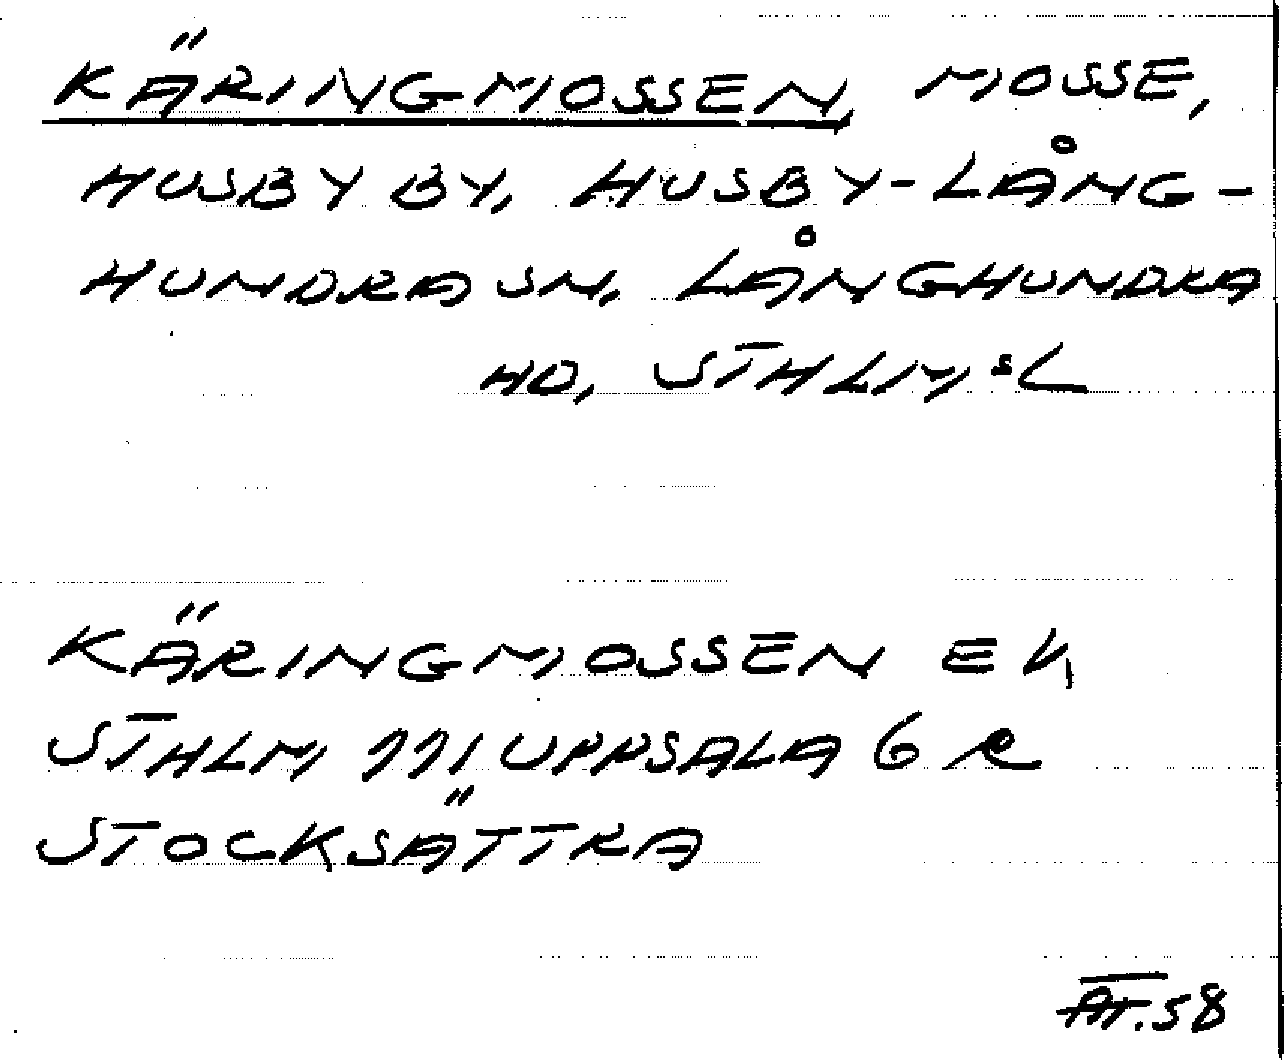 KÄRINGMOSSEN, MOSSE,
HUSBY BY, HUSBY-LÅNG-
HUNDRA SN, LÅNGHUNDRA
HD, STHLM,S L
KÄRINGMOSSEN EK,
STHLM, 111 UPPSALA 6 R
STOCKSÄTTRA
ÄT. 58